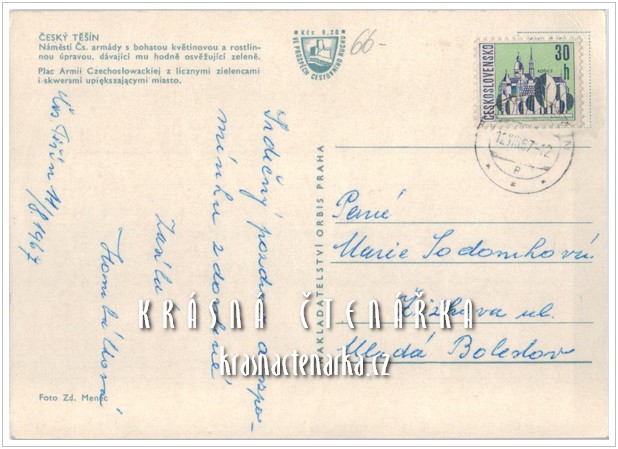 ČESKÝ TĚŠÍN
Náměstí Čs. armády s bohatou květinovou a rostlin-
nou úpravou, dávající mu hodně osvěžující zeleně.
Plac Armii Czechosłowackiej z licznymi zielencami
i skwersmi upiększającymi miasto.
Kčs 0,20
VE PROSPĚCH CESTOVNÍHO RUCHU
66-
ČESKOSLOVENSKO
30
h
12.VIII.67-12
Čes. Těšín 11/8. 1967
Srdečný pozdrav a vzpo-
mínku z dovolené
zasílá
NAKLADATELSTVÍ ORBIS PRAHA
Paní
Marie Sodomková
Žižkova ul.
Mladá Boleslav
KRÁSNÁ ČTENÁŘKA
krasnactenarka.cz
Foto Zd. Menec